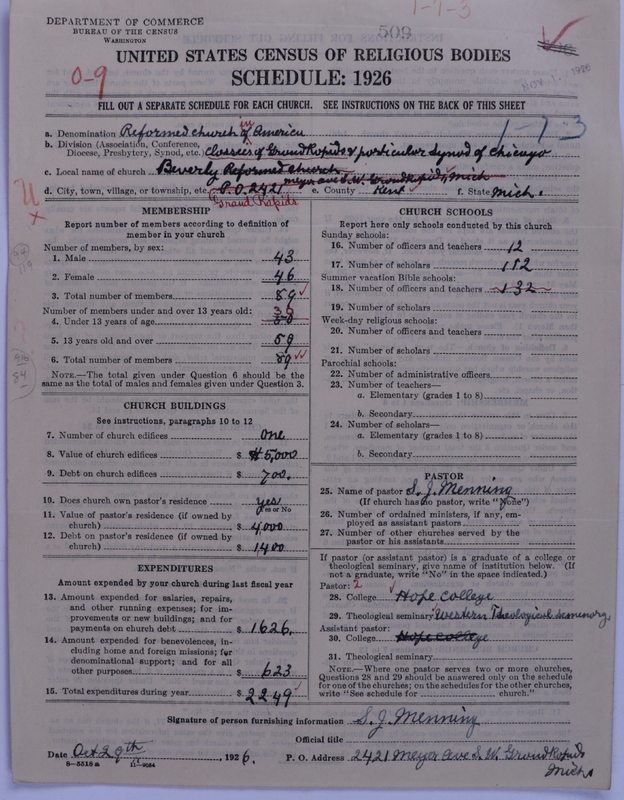 DEPARTMENT OF COMMERCE
BUREAU OF THE CENSUS
WASHINGTON
1-7-3
509
NOV 1926
UNITED STATES CENSUS OF RELIGIOUS BODIES
SCHEDULE: 1926
0-9
FILL OUT A SEPARATE SCHEDULE FOR EACH CHURCH. SEE INSTRUCTIONS ON THE BACK OF THIS SHEET
a. Denomination Reformed church in America
1-7-3
b. Division (Association, Conference, Diocese, Presbytery, Synod, etc.) Classis of Grand Rapids & particular synod of chicago
c. Local name of church Beverly Reformed church
meyer ave S.W. Grand Rapids, Mich
d. City, town, village, or township, etc. P.O. 2421 e. County Kent f. State Mich.
Grand Rapids
MEMBERSHIP
Report number of members according to definition of
member in your church
Number of members, by sex:
1. Male 43
2. Female 46
3. Total number of members 89
Number of members under and over 13 years old:
4. Under 13 years of age 30
5. 13 years old and over 59
6. Total number of members 89
NOTE.—The total given under Question 6 should be the
same as the total of males and females given under Question 3.
CHURCH BUILDINGS
See instructions, paragraphs 10 to 12
7. Number of church edifices one
8. Value of church edifices $ 5,000
9. Debt on church edifices $ 700.
10. Does church own pastor's residence yes
Yes or No
11. Value of pastor's residence (if owned by
church) $ 4,000
12. Debt on pastor's residence (if owned by
church) $ 1400
EXPENDITURES
Amount expended by your church during last fiscal year
13. Amount expended for salaries, repairs,
and other running expenses; for im-
provements or new buildings; and for
payments on church debt $ 1626.
14. Amount expended for benevolences, in-
cluding home and foreign missions; for
denominational support; and for all
other purposes $ 623
15. Total expenditures during year $ 2249
CHURCH SCHOOLS
Report here only schools conducted by this church
Sunday schools:
16. Number of officers and teachers 12
17. Number of scholars 182
Summer vacation Bible schools:
18. Number of officers and teachers 132
19. Number of scholars
Week-day religious schools:
20. Number of officers and teachers
21. Number of scholars
Parochial schools:
22. Number of administrative officers
23. Number of teachers—
a. Elementary (grades 1 to 8)
b. Secondary
24. Number of scholars—
a. Elementary (grades 1 to 8)
b. Secondary
PASTOR
25. Name of pastor S. J. Menning
(If church has no pastor, write "None")
26. Number of ordained ministers, if any, em-
ployed as assistant pastors
27. Number of other churches served by the
pastor or his assistants
If pastor (or assistant pastor) is a graduate of a college or
theological seminary, give name of institution below. (If
not a graduate, write "No" in the space indicated.)
Pastor: 2
28. College Hope College
29. Theological seminary Western Theological seminary.
Assistant pastor:
30. College Hope College
31. Theological seminary
NOTE.—Where one pastor serves two or more churches,
Questions 28 and 29 should be answered only on the schedule
for one of the churches; on the schedules for the other churches,
write "See schedule for church."
Signature of person furnishing information S. J. Menning
Official title
Date Oct 29th, 1926. P. O. Address 2421 Meyer Ave S.W. Grand Rapids
Mich.
8-5518a